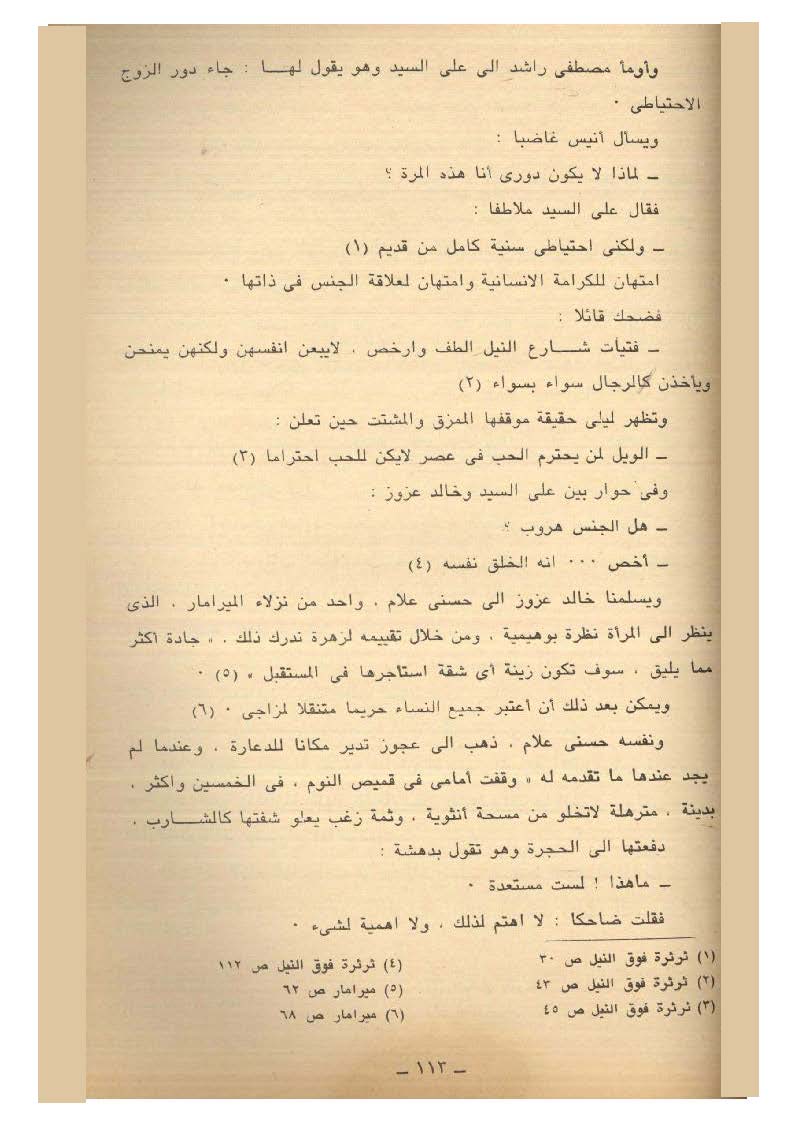 وأومأ مصطفى راشد الى على السيد وهو يقول لهـــا : جاء دور الزوج
الاحتياطى ٠
ويسأل أنيس غاضبا :
ـ لماذا لا يكون دورى أنا هذه المرة ؟
فقال على السيد ملاطفا :
ـ ولكنى احتياطى سنية كامل من قديم (١)
امتهان للكرامة الانسانية وامتهان لعلاقة الجنس فى ذاتها ٠
فضحك قائلا :
ـ فتيأت شـــــارع النيل الطف وارخص ، لايبعن انفسهن ولكنهن يمنحن
ويأخذن كالرجال سواء بسواء (٢)
وتظهر ليلى حقيقة موقفها الممزق والمشتت حين تعلن :
ـ الويل لمن يحترم الحب فى عصر لايكن للحب احتراما (٣)
وفى حوار بين على السيد وخالد عزوز :
ـ هل الجنس هروب ؟
ـ أخص ٠٠٠ انه الخلق نفسه (٤)
ويسلمنا خالد عزوز الى حسنى علام ، واحد من نزلاء الميرامار ، الذى
ينظر الى المرأة نظرة بوهيمية ، ومن خلال تقييمه لزهرة ندرك ذلك ، « جادة أكثر
مما يليق ، سوف تكون زينة أى شقة استأجرها فى المستقبل » (٥) ٠
ويمكن بعد ذلك أن أعتبر جميع النساء حريما متنقلا لمزاجى ٠ (٦)
ونفسه حسنى علام ، ذهب الى عجوز تدير مكانا للدعارة ، وعندما لم
يجد عندها ما تقدمه له « وقفت أمامى فى قميص النوم ، فى الخمسين واكثر ،
بدينة ، مترهلة لاتخلو من مسحة أنثوية ، وثمة زغب يعلو شفتها كالشـــــارب ،
دفعتها الى الحجرة وهو تقول بدهشة :
ـ ماهذا ! لست مستعدة ٠
فقلت ضاحكا : لا اهتم لذلك ، ولا اهمية لشىء ٠
(١) ثرثرة فوق النيل ص ٣٠
(٢) ثرثرة فوق النيل ص ٤٣
(٣) ثرثرة فوق النيل ص ٤٥
(٤) ثرثرة فوق النيل ص ١١٢
(٥) ميرامار ص ٦٢
(٦) ميرامار ص ٦٨
ـ ١١٣ ـ